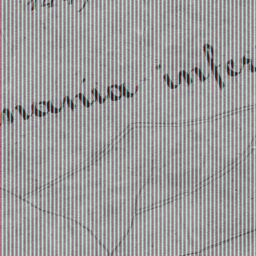 mania infer